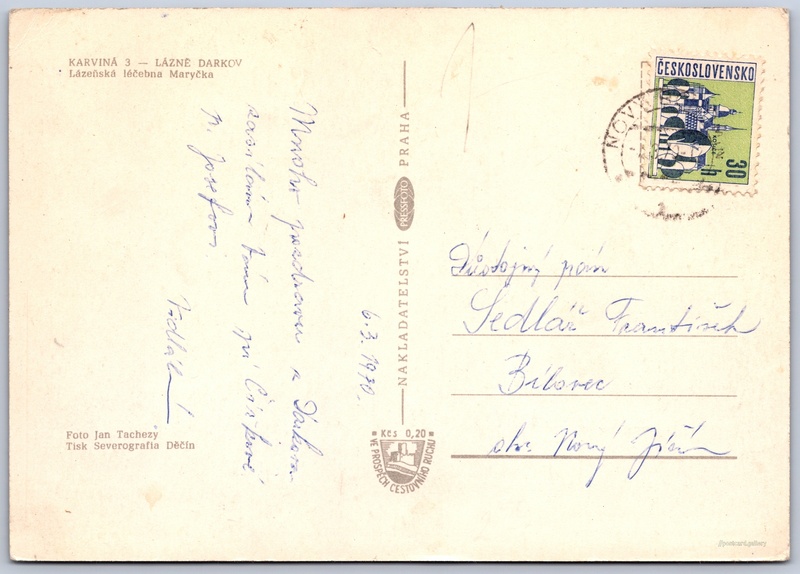 KARVINÁ 3 — LÁZNĚ DARKOV
Lázeňská léčebna Maryčka
Mnoho pozdravů z Darkova
zasíláme Vám při
p. Josefov
6.3.1970.
Foto Jan Tachezy
Tisk Severografia Děčín
NAKLADATELSTVÍ PRESSFOTO PRAHA
Kčs 0,20
VE PROSPĚCH CESTOVNÍHO RUCHU
ČESKOSLOVENSKO
30 h
NOVÝ
Důstojný pán
Sedlář František
Bílovec
okr. Nový Jičín